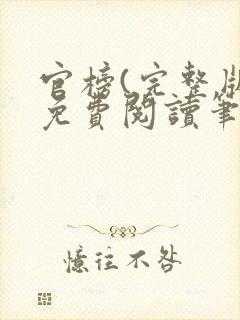 官榜(完整版
免費閱讀筆
憶往不咎